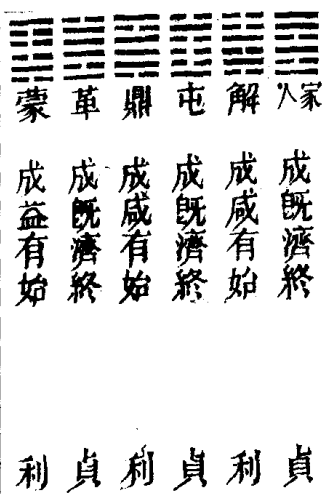 家人 成既濟終 貞
解 成咸有始 利
屯 成既濟終 貞
鼎 成咸有始 利
革 成既濟終 貞
蒙 成益有始 利